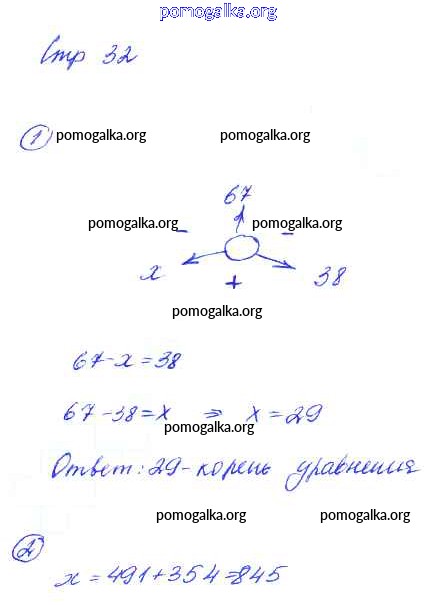 pomogalka.org
Стр 32
1 pomogalka.org pomogalka.org
67
pomogalka.org - - pomogalka.org
x + 38
pomogalka.org
67-x=38
67-38=x ⇒ x=29
pomogalka.org
Ответ: 29-корень уравнения
pomogalka.org pomogalka.org
2
x=491+354=845